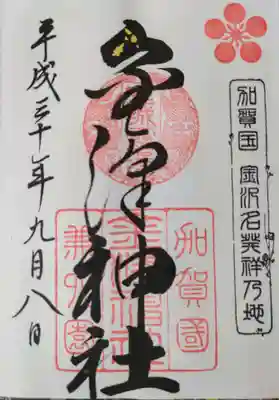 加賀国 金沢名発祥乃地
金澤神社
平成三十年九月八日
加賀國
金澤神社
兼六園